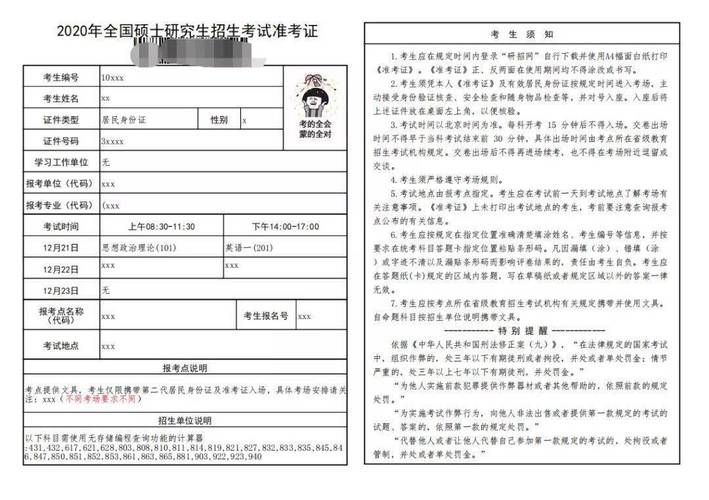 2020年全国硕士研究生招生考试准考证
考生编号 10xxx
考生姓名 xx
证件类型 居民身份证 性别 x
证件号码 3xxxx
考的全会
蒙的全对
学习工作单位 无
报考单位（代码） xxx
报考专业（代码） (xxx
考试时间 上午08:30-11:30 下午14:00-17:00
12月21日 思想政治理论(101) 英语一(201)
12月22日 xxx xxx
12月23日 无
报考点名称
（代码） xxx 考生报名号 xxx
考试地点 xxx
报考点说明
考点提供文具，考生仅限携带第二代居民身份证及准考证入场，具体考场安排请关
注：xxx（不同考场要求不同）
招生单位说明
以下科目需使用无存储编程查询功能的计算器
:431,432,617,621,628,803,808,810,811,814,819,821,827,832,833,835,845,84
6,847,850,851,852,853,861,863,865,881,903,922,923,940
考 生 须 知
1.考生应在规定时间内登录“研招网”自行下载并使用A4幅面白纸打印
《准考证》。《准考证》正、反两面在使用期间均不得涂改或书写。
2.考生须凭本人《准考证》及有效居民身份证按规定时间进入考场，主
动接受身份验证核查、安全检查和随身物品检查等，并对号入座。入座后将
上述证件放在桌面左上角，以便核验。
3.考试时间以北京时间为准。每科开考 15 分钟后不得入场。交卷出场
时间不得早于当科考试结束前 30 分钟，具体出场时间由考点所在省级教育
招生考试机构规定。交卷出场后不得再进场续考，也不得在考场附近逗留或
交谈。
4.考生须严格遵守考场规则。
5.考试地点由报考点指定。考生应在考试前一天到考试地点了解考场有
关注意事项。《准考证》上未打印出考试地点的考生，考前要注意查询报考
点公布的有关信息。
6.考生应按规定在指定位置准确清楚填涂姓名、考生编号等信息，并按
要求在统考科目答题卡指定位置粘贴条形码。凡因漏填（涂）、错填（涂
）或字迹不清以及漏贴条形码而影响评卷结果的，责任由考生自负。考生应
在答题纸(卡)规定的区域内答题，写在草稿纸或者规定区域以外的答案一律
无效。
7.考生应按考点所在省级教育招生考试机构有关规定携带并使用文具。
自命题科目按招生单位说明携带文具。
----------- 特 别 提 醒 -----------
依据《中华人民共和国刑法修正案（九）》，“在法律规定的国家考试
中，组织作弊的，处三年以下有期徒刑或者拘役，并处或者单处罚金；情节
严重的，处三年以上七年以下有期徒刑，并处罚金。”
“为他人实施前款犯罪提供作弊器材或者其他帮助的，依照前款的规定
处罚。”
“为实施考试作弊行为，向他人非法出售或者提供第一款规定的考试的
试题、答案的，依照第一款的规定处罚。”
“代替他人或者让他人代替自己参加第一款规定的考试的，处拘役或者
管制，并处或者单处罚金。”